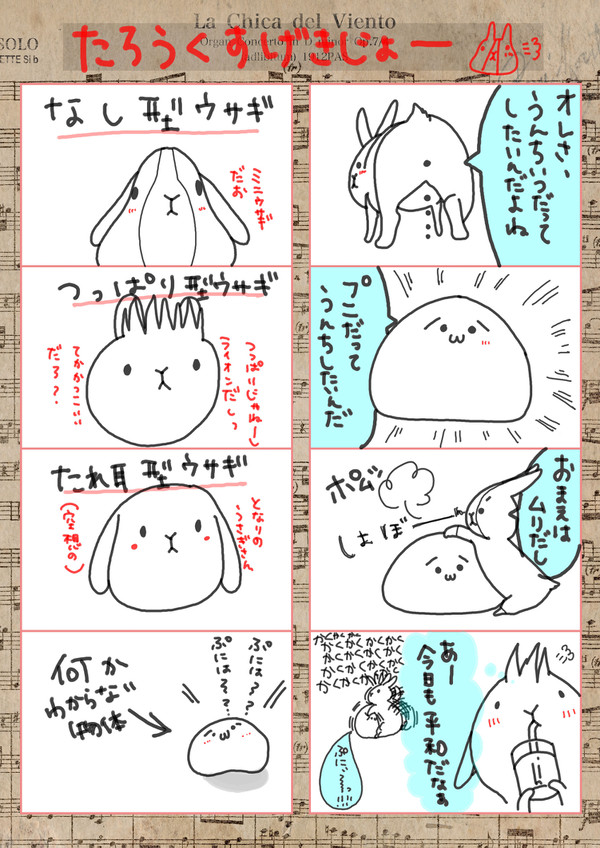 La Chica del Viento
SOLO
たろうくすげきじょー
なし型ウサギ
ミニウサギ
だお
つっぱり型ウサギ
つっぱりじゃねーし
ライオンだしっ
てかかっこいい
だろ?
たれ耳型ウサギ
となりの
うさぎさん
(空想の)
何か
わからない
物体
ぷには??
ぷには??
オレさ、
うんちいつだって
したいんだよね
プニだって
うんちしたいんだ
おまえは
ムリだし
ポムッ
しょぼ
あー
今日も平和だなぁ
かくかくかく
かくかくかくかく
かくかくかくかく
かくかくかく
かくかく
ぷにぃ〜〜っ!!!